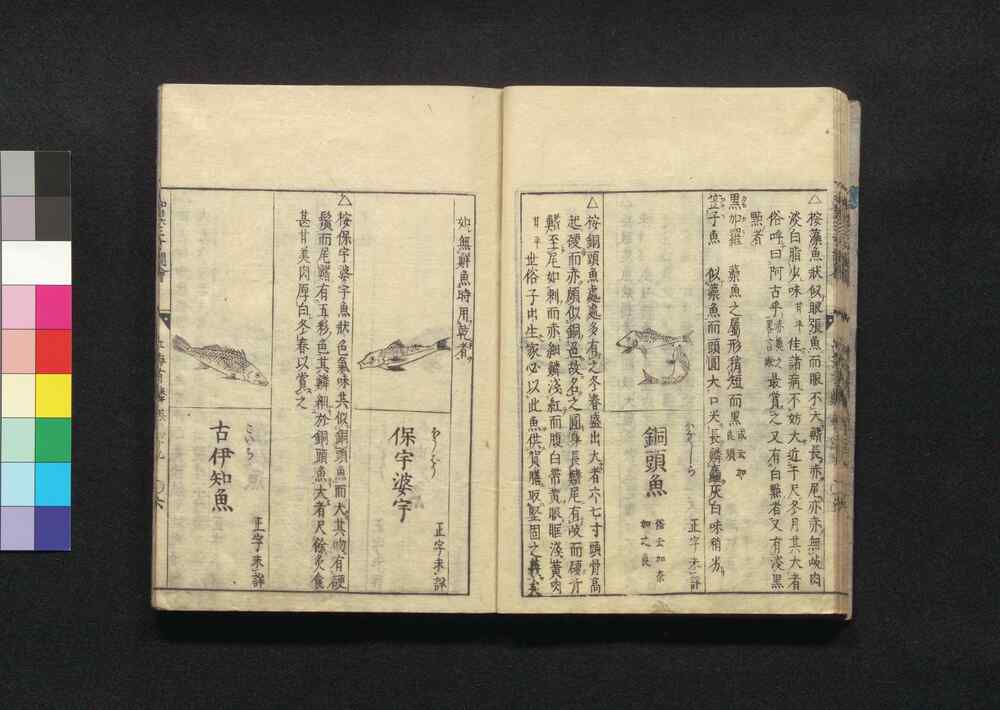 △ 按藻魚狀似眼張魚而眼不大鰭長赤尾亦赤無岐肉
淡白脂少味甘平佳諸病不妨大近于尺冬月其大者
俗呼曰阿古乎最賞之又有白點者又有淺黑
點者
黑加羅 藻魚之屬形稍短而黑
笠子魚 似藻魚而頭圓大口尖長鱗麤灰白味稍劣
銅頭魚
かながしら
正字未詳
俗云加奈
加之良
△ 按銅頭魚處處多有之冬春盛出大者六七寸頭骨高
起硬而赤頗似銅色故名之圓身長鰭尾有岐而硬方
鰭至尾如刺而赤細鱗淺紅而腹白帶黃眼眶淺黃肉
甘平世俗子出生家必以此魚供賀膳取堅固之義矣
如無鮮魚時用乾者
保宇婆宇
ほうぼう
正字未詳
△ 按保宇婆宇魚狀色氣味共似銅頭魚而大其吻有硬
鬚而尾鰭有五彩色其鱗細於銅頭魚大者尺餘炙食
甚甘美肉厚白冬春以賞之
古伊知魚
こいち
正字未詳